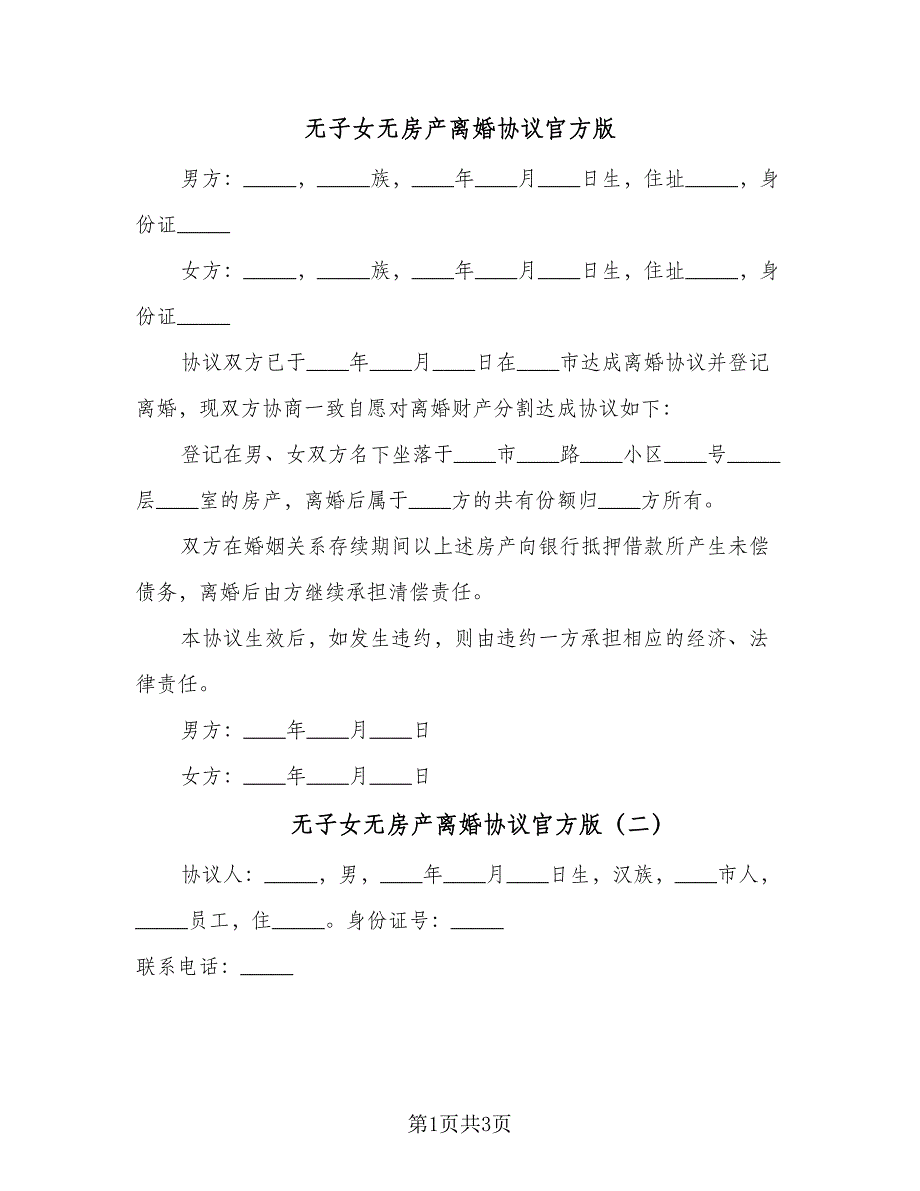 无子女无房产离婚协议官方版
男方：_____，_____族，____年____月____日生，住址_____，身
份证_____
女方：_____，_____族，____年____月____日生，住址_____，身
份证_____
协议双方已于____年____月____日在____市达成离婚协议并登记
离婚，现双方协商一致自愿对离婚财产分割达成协议如下：
登记在男、女双方名下坐落于____市____路____小区____号_____
层____室的房产，离婚后属于____方的共有份额归____方所有。
双方在婚姻关系存续期间以上述房产向银行抵押借款所产生未偿
债务，离婚后由方继续承担清偿责任。
本协议生效后，如发生违约，则由违约一方承担相应的经济、法
律责任。
男方：____年____月____日
女方：____年____月____日
无子女无房产离婚协议官方版（二）
协议人：_____，男，____年____月____日生，汉族，____市人，
_____员工，住_____。身份证号：_____
联系电话：_____
第1页共3页